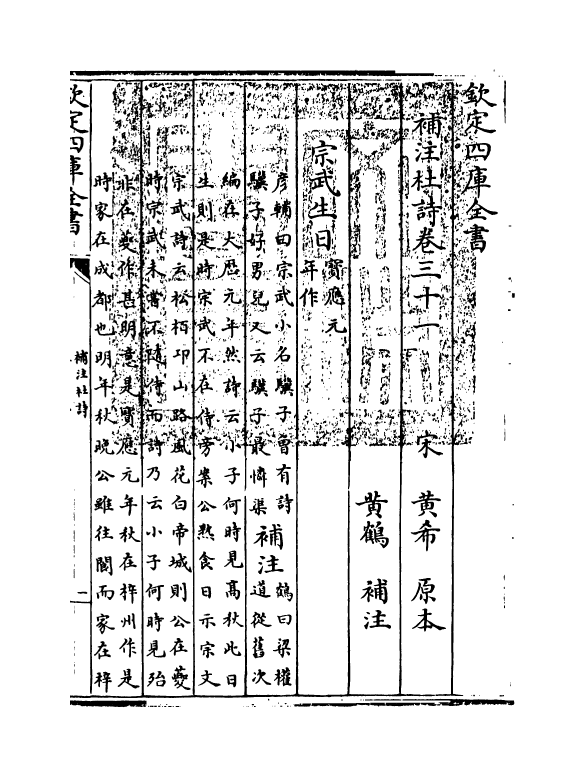 欽定四庫全書
補注杜詩卷三十一 宋 黄希 原本
黄鶴 補注
宗武生日 寶應元
年作
彦輔曰宗武小名驥子曾有詩
驥子好男兒又云驥子最憐渠
補注
鶴曰梁權
道從舊次
編在大厯元年然詩云小子何時見高秋此日
生則是時宗武不在侍旁案公熟食日示宗文
宗武詩云松栢邙山路風花白帝城則公在夔
時宗武未嘗不隨侍而詩乃云小子何時見殆
非在夔作甚明意是寶應元年秋在梓州作是
時家在成都也明年秋晚公雖往閬而家在梓
欽定四庫全書
補注杜詩
一